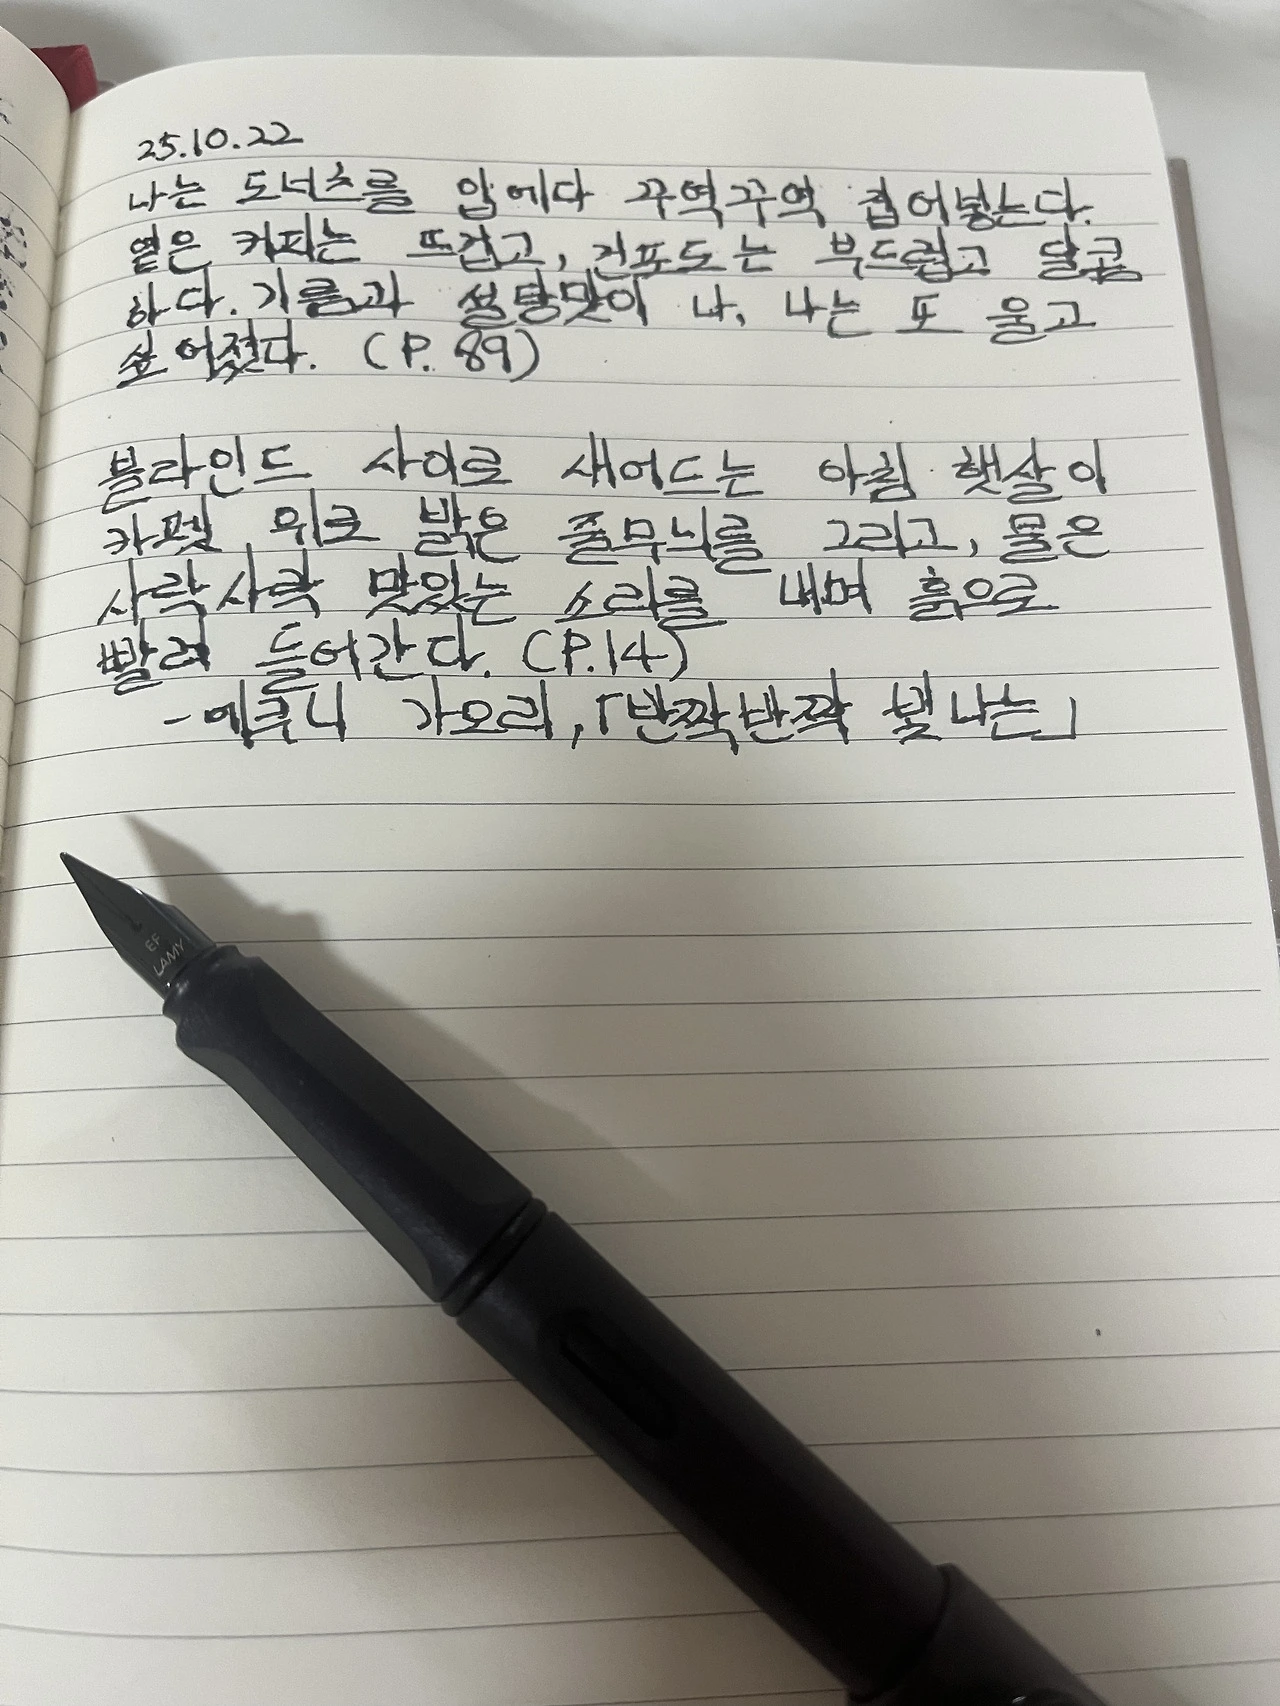 25.10.22
나는 도너츠를 입에다 꾸역꾸역 집어넣는다.
옅은 커피는 뜨겁고, 건포도는 부드럽고 달콤
하다. 기름과 설탕맛이 나, 나는 또 울고
싶어졌다. (P. 89)
블라인드 사이로 새어드는 아침 햇살이
카펫 위로 밝은 줄무늬를 그리고, 물은
사락사락 맛있는 소리를 내며 흙으로
빨려 들어간다. (P.14)
- 에쿠니 가오리, 「반짝반짝 빛나는」
EF
LAMY